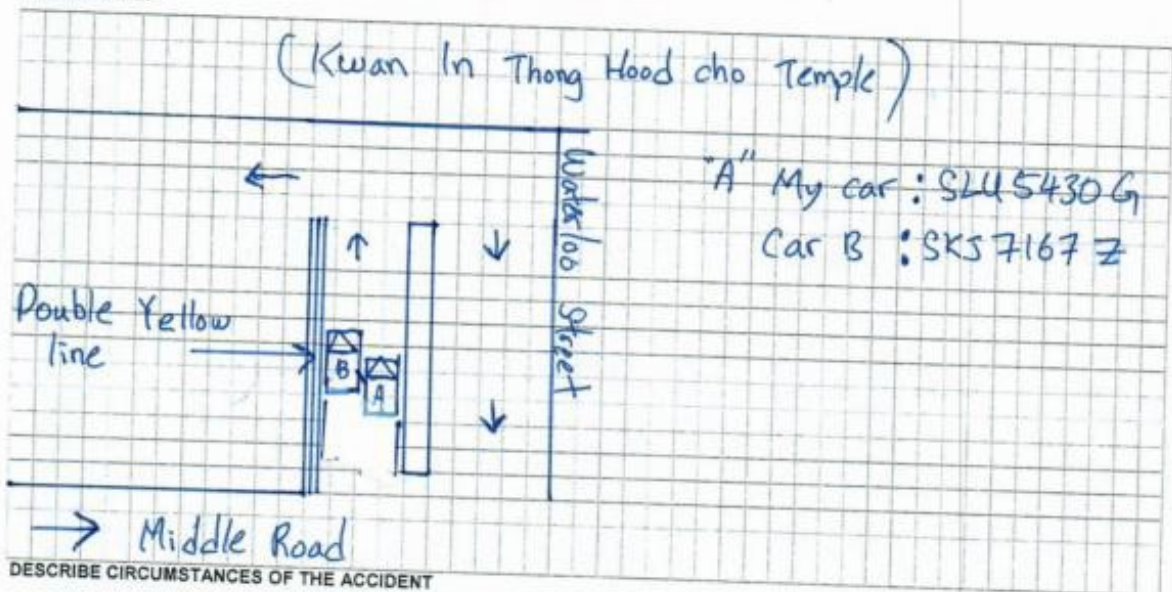 (Kwan In Thong Hood cho Temple)
Waterloo Street
"A" My car : SLU 5430 G
Car B : SKS 7167 Z
Double Yellow
line
B
A
Middle Road
DESCRIBE CIRCUMSTANCES OF THE ACCIDENT